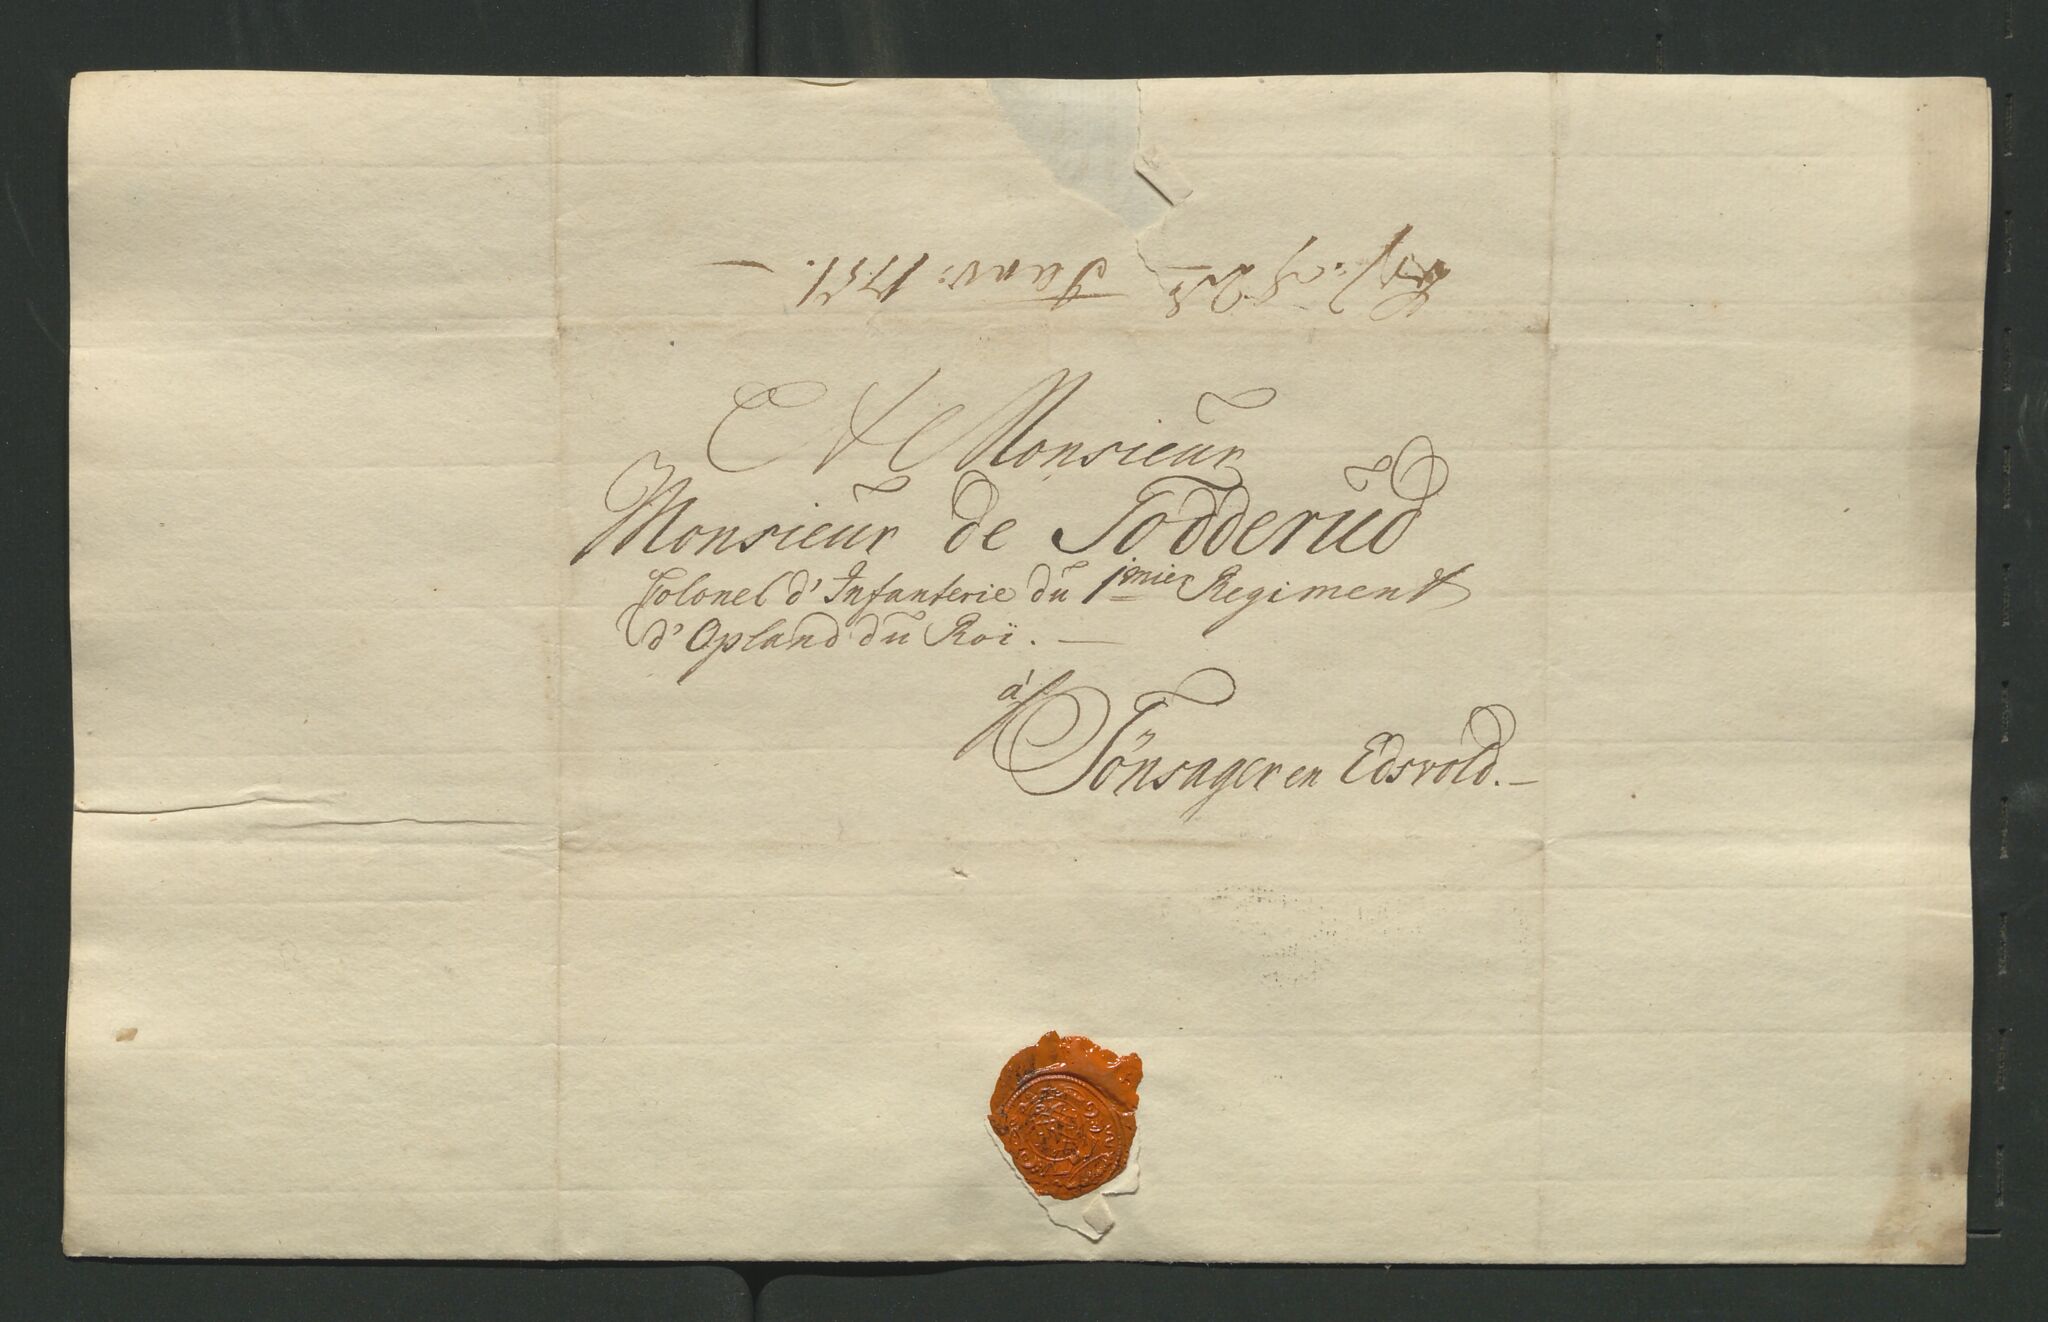 8 Janv: 1751. —
A Monsieur
Monsieur de Todderüd
Colonel d'Infanterie du 1mier Regiment
d'Opland du Roi. —
à
Tönsager en Edsvold. —